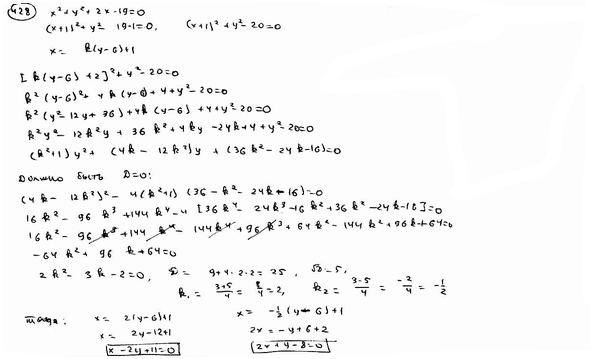 428 x²+y²+2x-19=0
(x+1)²+y²-19-1=0, (x+1)²+y²-20=0
x= k(y-6)+1
[k(y-6)+2]²+y²-20=0
k²(y-6)²+4k(y-6)+4+y²-20=0
k²(y²-12y+36)+4k(y-6)+4+y²-20=0
k²y²-12k²y+36k²+4ky-24k+4+y²-20=0
(k²+1)y²+(4k-12k²)y+(36k²-24k-16)=0
Должно быть D=0:
(4k-12k²)²-4(k²+1)(36-k²-24k-16)=0
16k²-96k³+144k⁴-4[36k⁴-24k³-16k²+36k²-24k-16]=0
16k²-96k³+144k⁴-144k⁴+96k³+64k²-144k²+96k+64=0
-64k²+96k+64=0
2k²-3k-2=0, D= 9+4·2·2=25, √D=5,
k₁= 3+5/4 = 8/4=2, k₂= 3-5/4 = -2/4 = -1/2
тогда: x= 2(y-6)+1 x= -1/2(y-6)+1
x= 2y-12+1 2x=-y+6+2
x-2y+11=0 2x+y-8=0